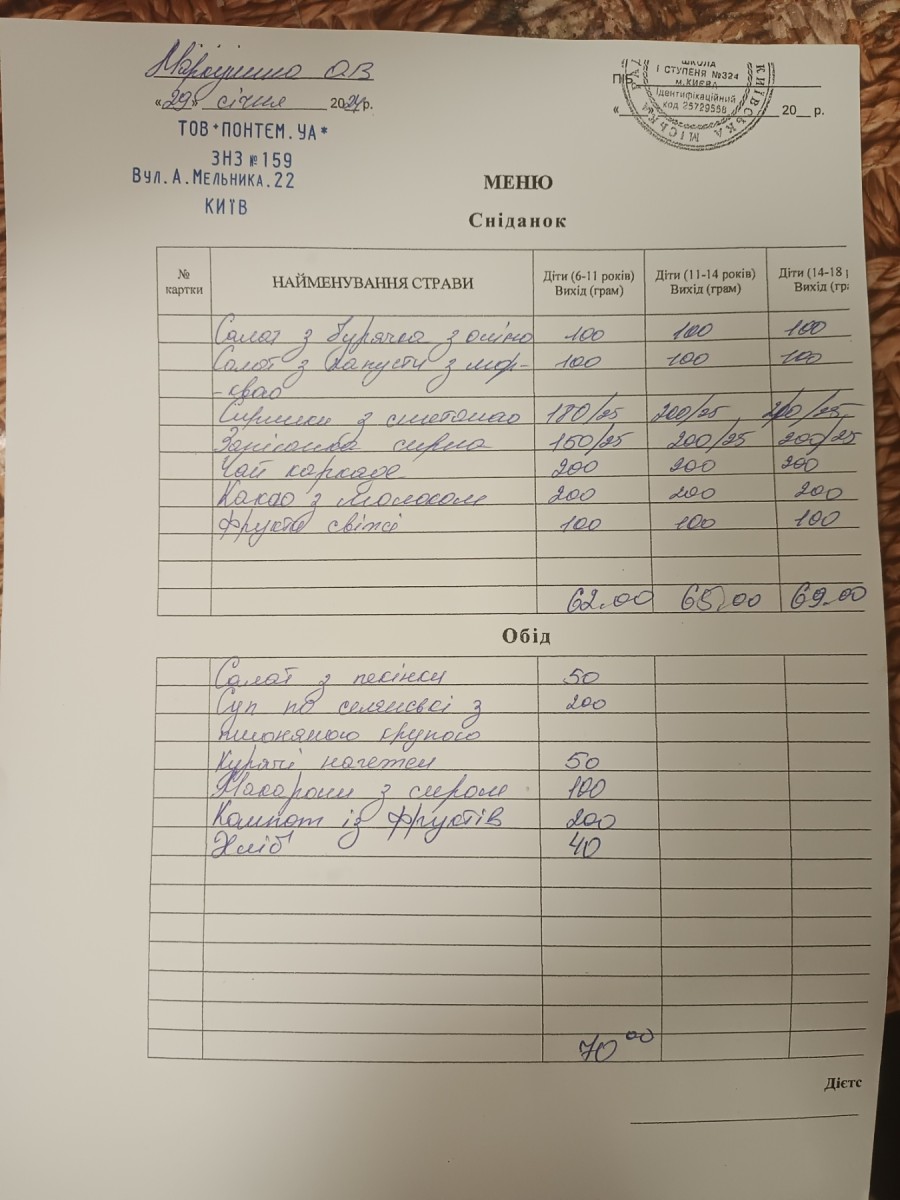 О.В
«29» січня 2024р.
ТОВ"ПОНТЕМ.УА"
ЗНЗ №159
Вул.А.Мельника.22
КИЇВ
ПІБ
ШКОЛА
І СТУПЕНЯ №324
м.КИЄВА
Ідентифікаційний
код 25729558
КИЇВСЬКА МІСЬКА РАДА
« 20__ р.
МЕНЮ
Сніданок
№ картки НАЙМЕНУВАННЯ СТРАВИ Діти (6-11 років) Вихід (грам) Діти (11-14 років) Вихід (грам) Діти (14-18 Вихід
Салат з буряка з олією 100 100 100
Салат з капусти з мор- 100 100 100
-квою
Сирники з сметаною 180/25 200/25 200/25
Запіканка сирна 150/25 200/25 200/25
Чай каркаде 200 200 200
Какао з молоком 200 200 200
Фрукти свіжі 100 100 100
62.00 65.00 69.00
Обід
Салат з пекінки 50
Суп по селянські з 200
пшоняною крупою
Курячі нагетси 50
Макарони з сиром 100
Компот із фруктів 200
Хліб 40
70 00
Дієтс